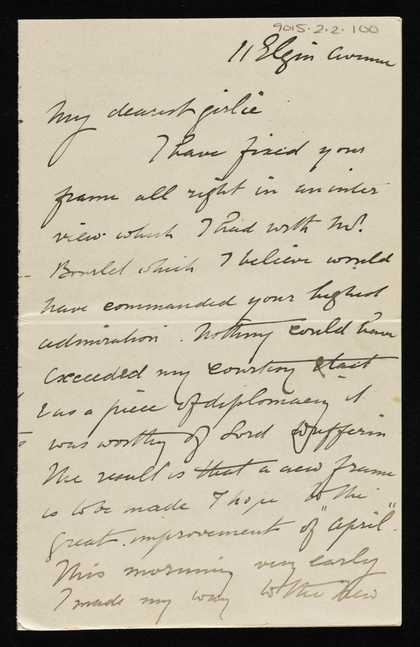 9015-2-2-100
11 Elgin Avenue
My dearest girlie
I have fixed your
frame all right in an inter
view which I had with Mr.
Bourlet which I believe would
have commanded your highest
admiration. Nothing could have
exceeded my courtesy & tact
& as a piece of diplomacy it
was worthy of Lord Dufferin
The result is that a new frame
is to be made I hope to the
great improvement of "April".
This morning very early
I made my way to the New